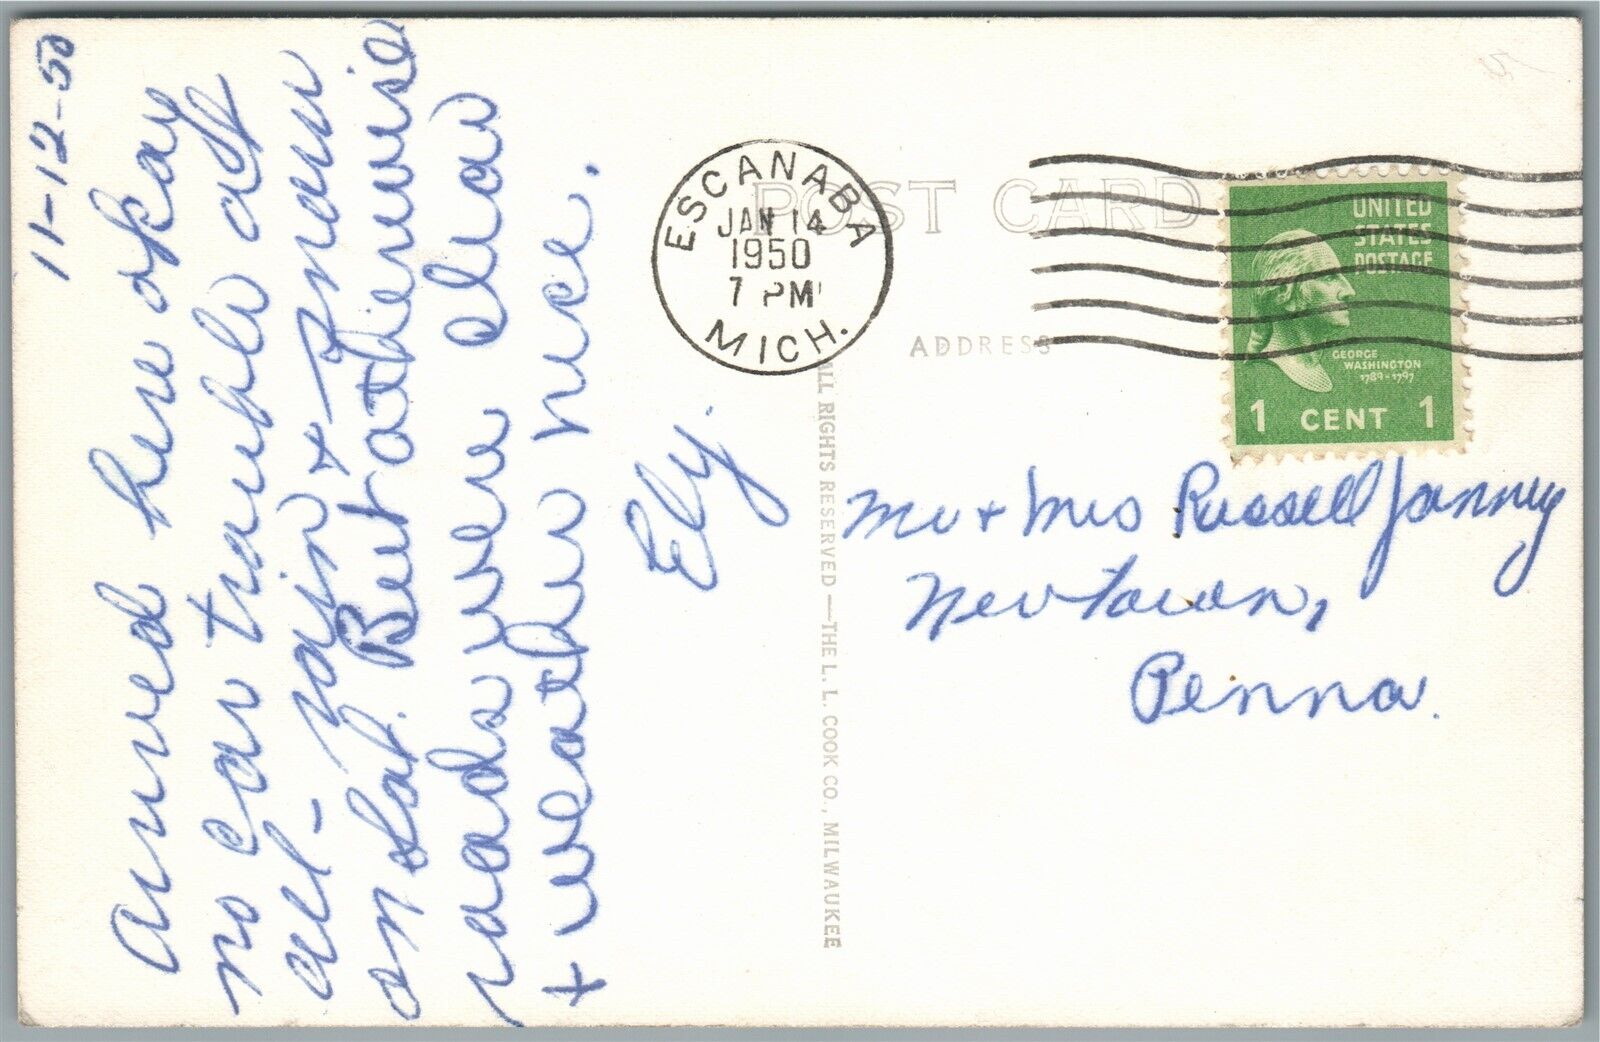 11-12-50
Arrived here okay
no car trouble att
all - rain + snow
on Sat. But otherwise
roads were clear
+ weather nice.
Ely.
ESCANABA
JAN 14
1950
7 PM
MICH.
POST CARD
ADDRESS
UNITED
STATES
POSTAGE
GEORGE
WASHINGTON
1789-1797
1 CENT 1
ALL RIGHTS RESERVED — THE L. L. COOK CO., MILWAUKEE
Mr + Mrs Russell Janney
Newtown,
Penna.